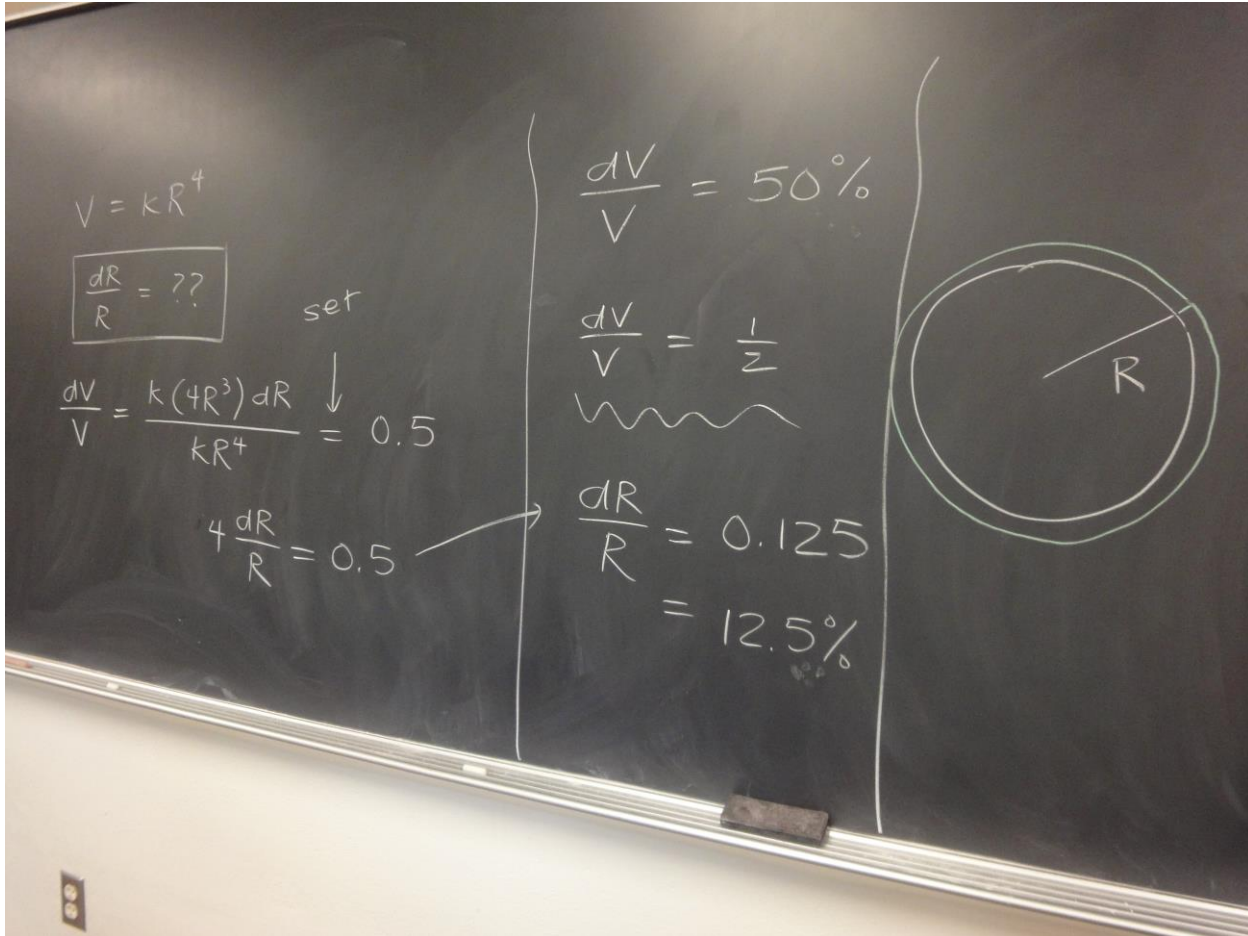 V = kR⁴
dR/R = ??
set
dV/V = k(4R³)dR/kR⁴ = 0.5
4 dR/R = 0.5
dV/V = 50%
dV/V = 1/2
dR/R = 0.125
= 12.5%
R